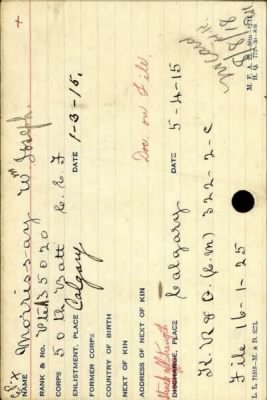 +
NAME Morrissay, Wm Joseph.
RANK & No. Pte 435020
CORPS 50th Batt C. E. F
ENLISTMENT, PLACE Calgary DATE 1-3-15.
FORMER CORPS
COUNTRY OF BIRTH
NEXT OF KIN
ADDRESS OF NEXT OF KIN Doc. on File.
Struck off Strength
DISCHARGE, PLACE Calgary DATE 5-4-15
K. R & O. (C. M) 322-2-c
File 16-1-25